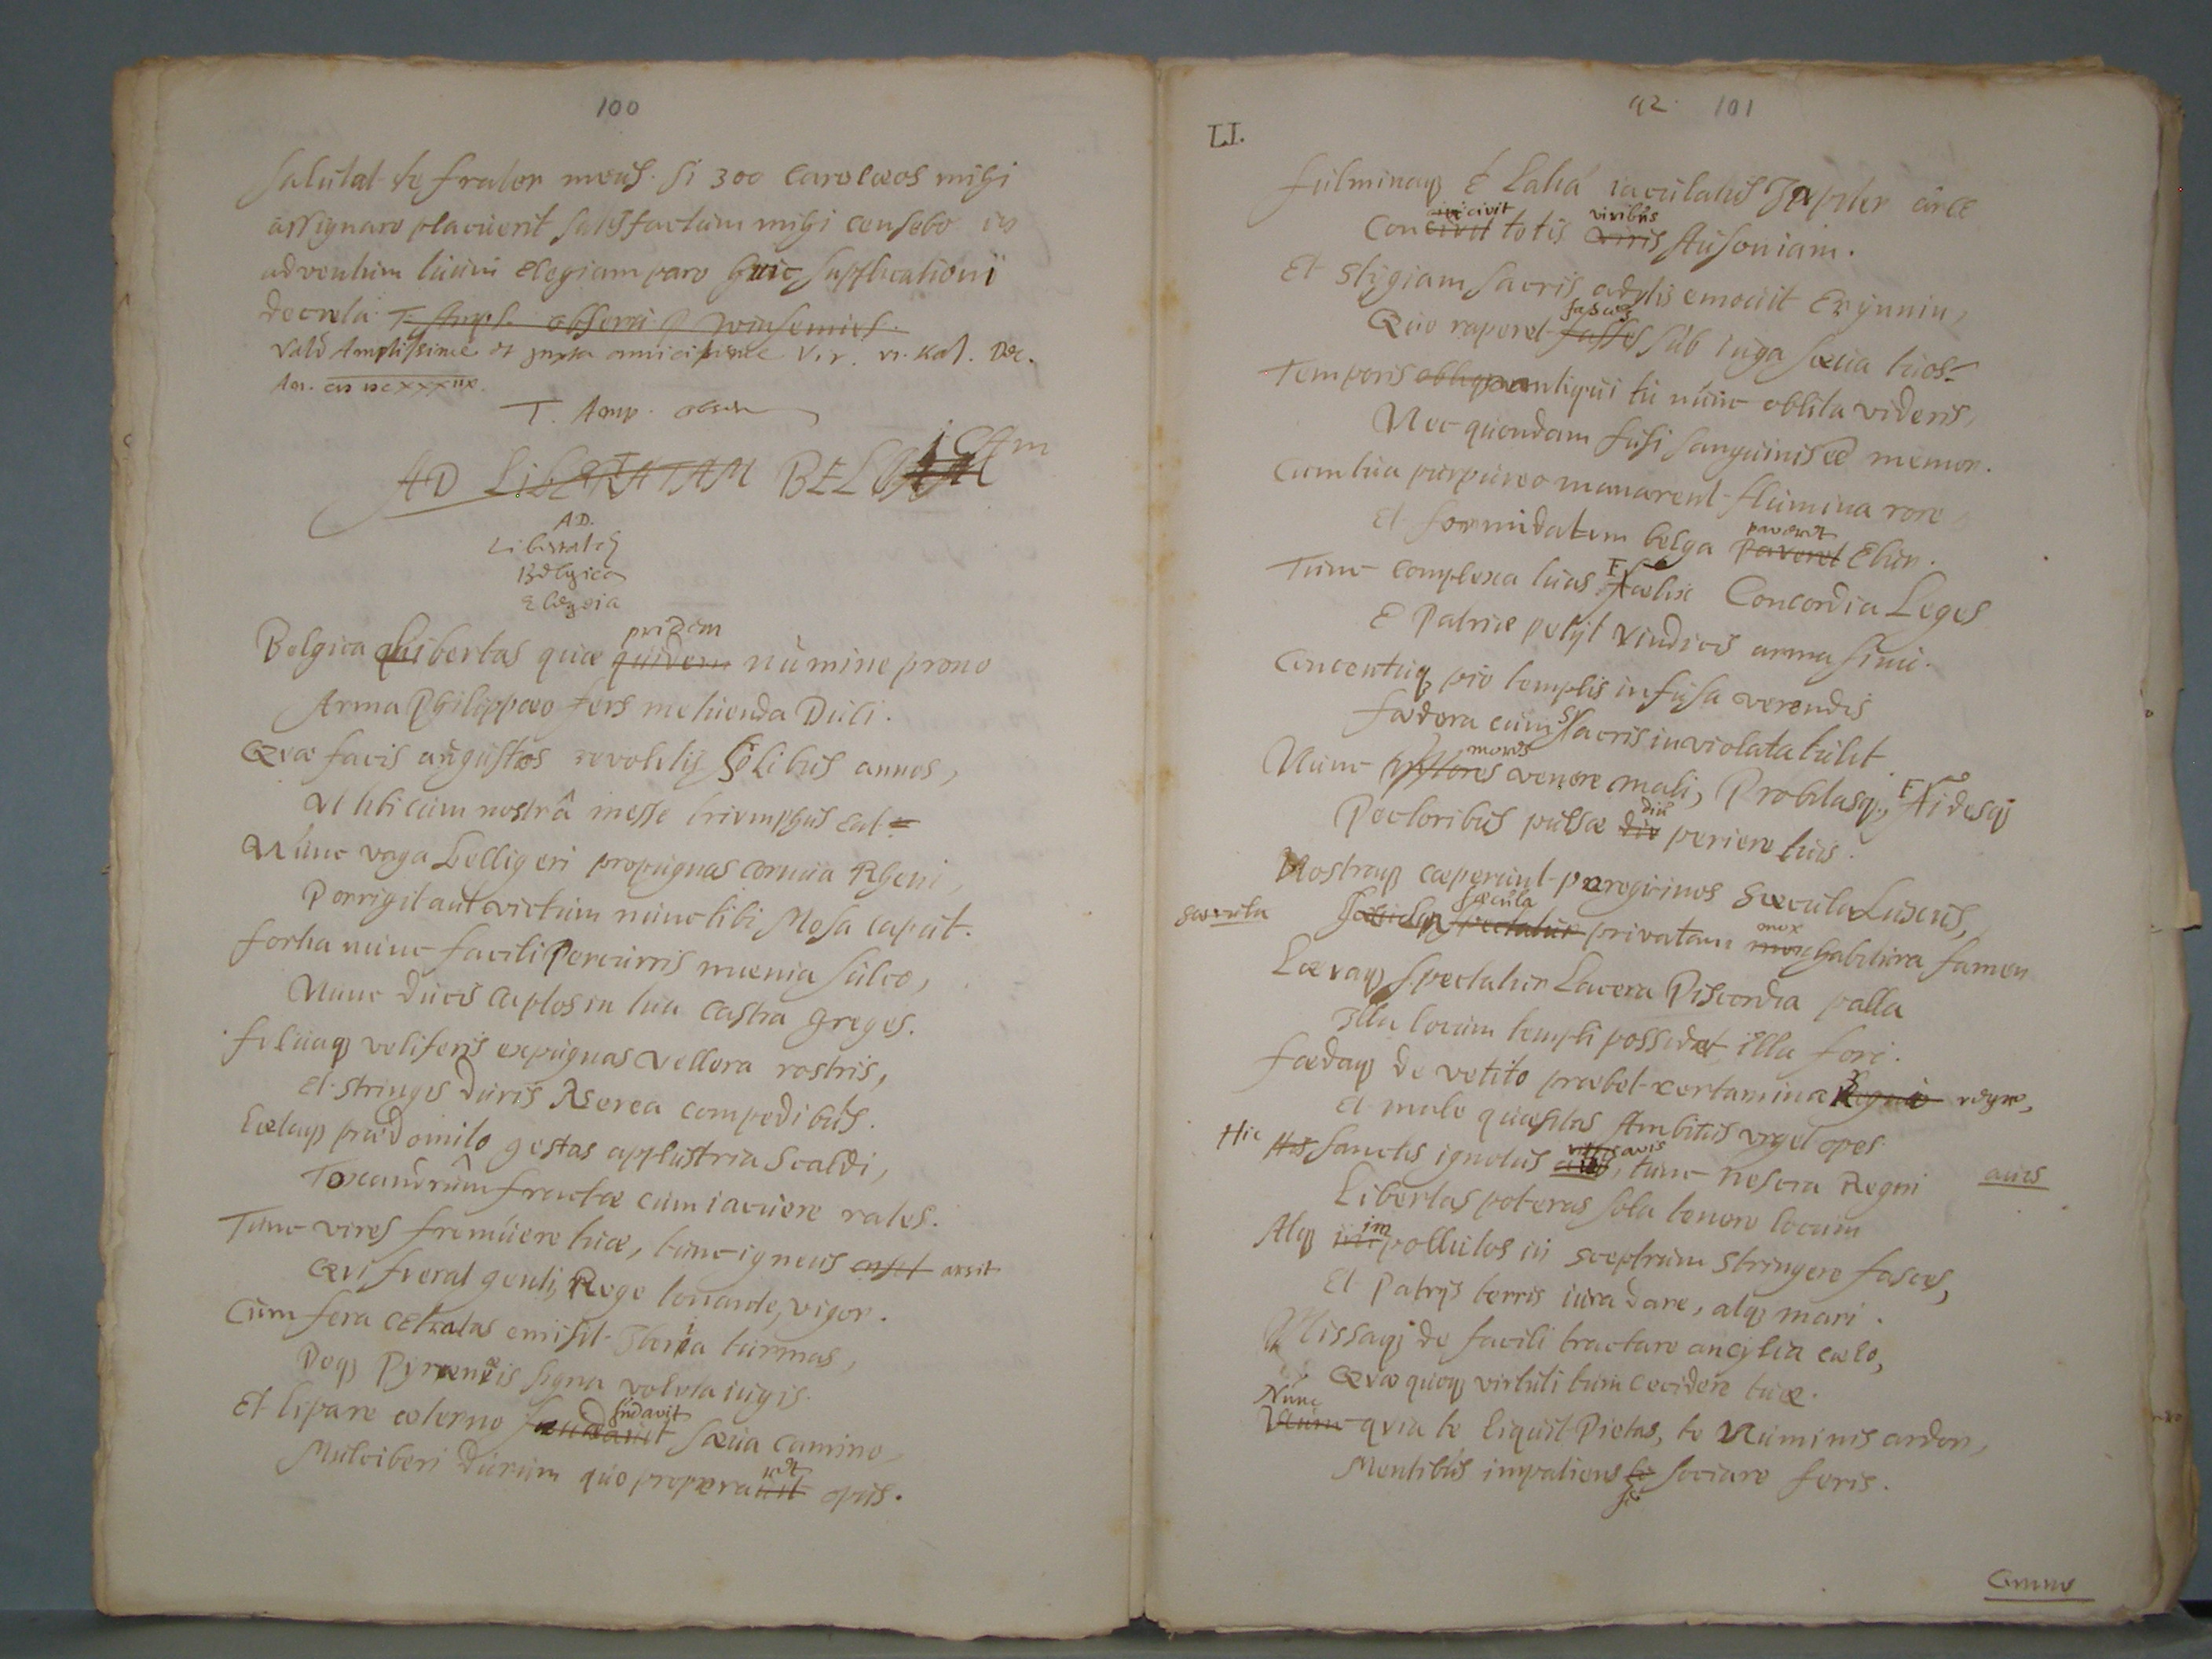 100
Salutat te frater meus. Si 300 Carolaeos mihi
assignare placuerit satisfactum mihi censebo in
adventum tuum Elegiam paro huic supplicationi
decreta. T. Ampl. observ. P Winsemius.
Vale Amplissime et Vir. VI. Kal. Dec.
T. Amp. obser
AD LIBERTATAM BELGICAM
AD.
Libertatem
Belgica
Elegeia
pridem
Belgica Libertas quae quidem numine prono
Arma Philippaeo fers metuenda Duci.
Quae facis augustos revolutis solibus annos,
Ut tibi cum nostrâ messe triumphus eat.
Nunc vaga belligeri propugnas cornua Rheni,
Porrigit aut victum nunc tibi Mosa caput.
Fortia nunc facili percurris moenia sulco,
Nunc ducis captos in tua castra greges.
Fulvaq; veliferis expugnas vellera rostris,
Et stringis duris Aerea compedibus.
Laetaq; praedomito gestas applustria Scaldi,
Toxandrûm fractae cum iacuere rates.
Tunc vires fremuere tuae, tunc igneus arsit
Qui fuerat genti, Rege tonante, vigor.
Cum fera cetratas emisit Iberia turmas,
Deq; Pyrenaeis signa voluta iugis.
sudavit
Et Lipare aeterno saeva camino,
Mulciberi durum quo properavit opus.
92. 101
LI.
Fulminaq; è Latiâ iaculatus Jupiter arce
viribus
Concivit totis viris Ausoniam.
Et stygiam sacris adytis emovit Erynnin,
fasces
Quo raperet fasses sub iuga saeva tuos.
Temporis antiqui tu nunc oblita videris,
Nec quondam fusi sanguinis es memor.
Cum tua purpureo manarent flumina rore
Et formidatum belga paveret Ebur.
Tunc complexa tuas Faelix Concordia Leges
E Patriae petijt vindicis arma sinu.
Concentuq; pio templis infusa verendis
Faedera cum sacris inviolata tulit.
mores
Nunc venere mali, Probitasq;, Fidesq;
diu
Pectoribus pulsae diu periere tuis.
Nostraq; caeperunt peregrinos saecula Luxus,
saecula
saecula
privatam mox habitura famen
mox
Laevaq; spectatur Lacera Discordia palla
Illa locum templi possidet, illa fori.
Faedaq; de vetito praebet certamina Regno regno,
Et male quaesitas Ambitus urget opes.
Hic His Sanctis ignotus avis, tunc nescia Regni
avis
Libertas poteras sola tenere locum
Atq; impollutos in sceptrum stringere fasces,
Et Patrijs terris iura dare, atq; mari.
Missaq; de facili tractare ancylia caelo,
Quae quoq; virtuti tum cecidere tuae.
Nunc
quia te liquit Pietas, te Numinis ardor,
Mentibus impatiens te sociare feris.
se